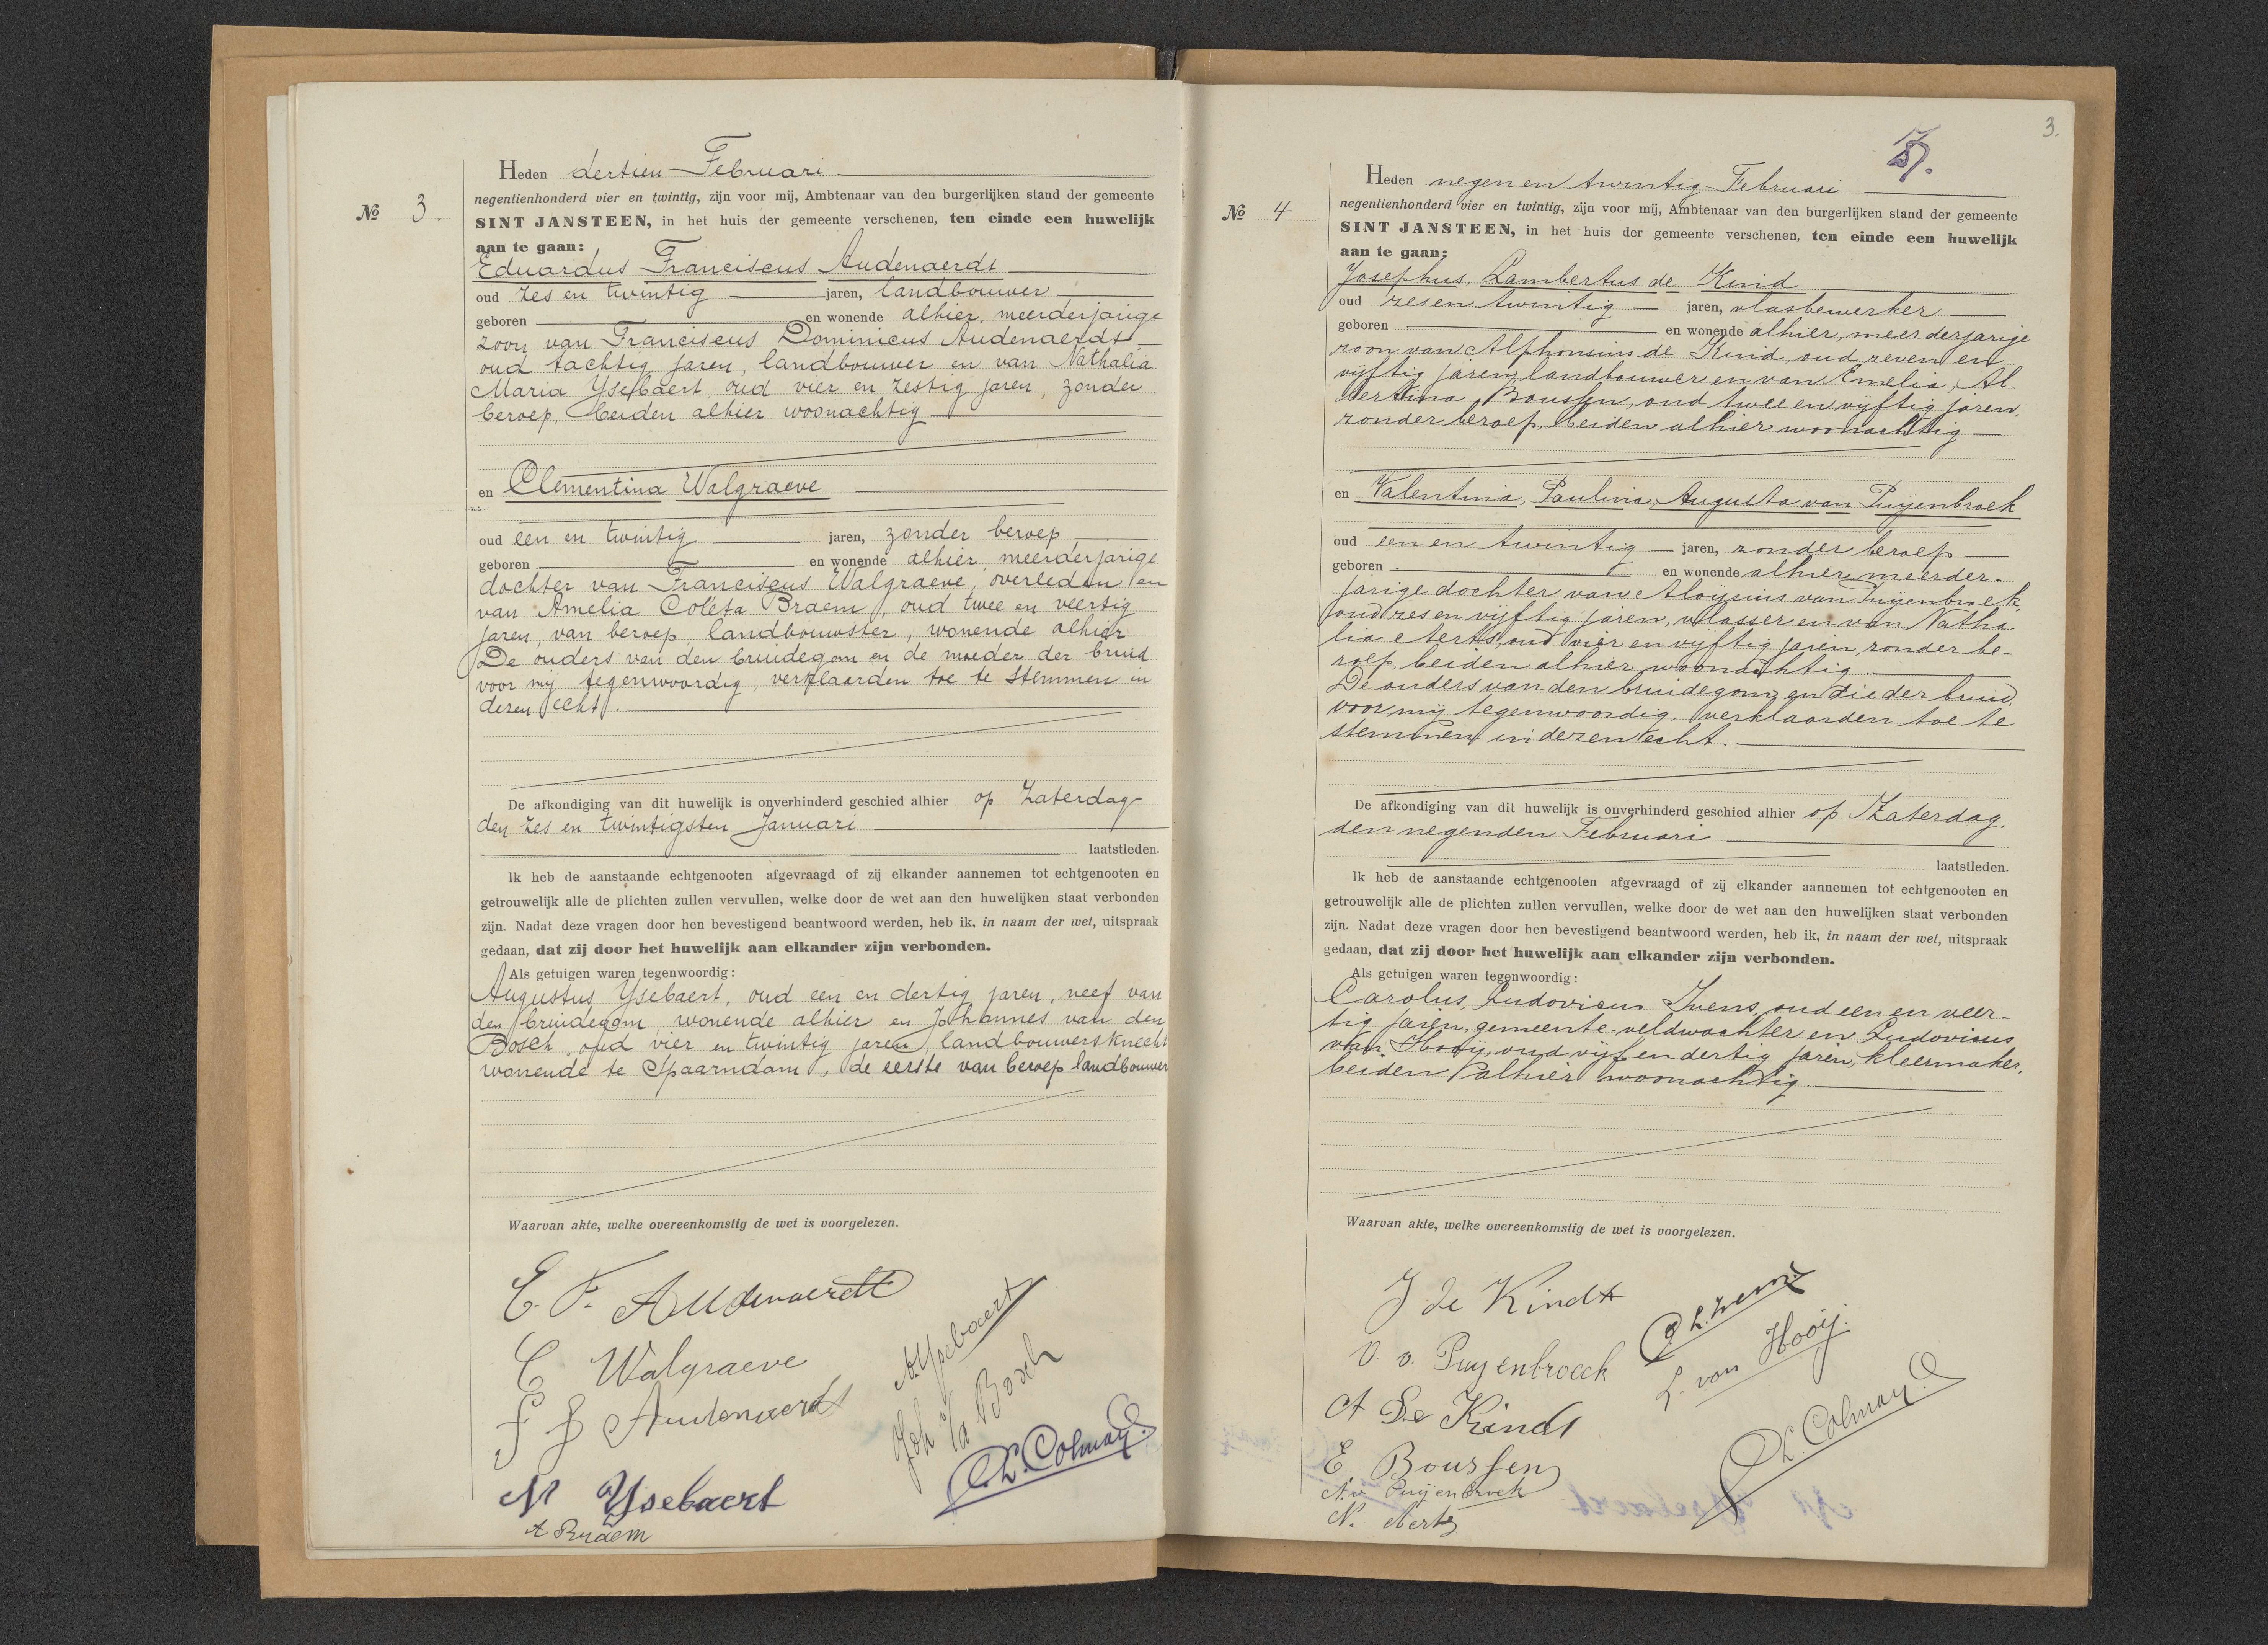 Heden dertien Februari
negentienhonderd vier en twintig, zijn voor mij, Ambtenaar van den burgerlijken stand der gemeente
№ 3.
SINT JANSTEEN, in het huis der gemeente verschenen, ten einde een huwelijk
aan te gaan:
Eduardus Franciscus Audenaerdt
oud zes en twintig jaren, landbouwer
geboren en wonende alhier, meerderjarige
zoon van Franciscus Dominicus Audenaerdt
oud tachtig jaren, landbouwer en van Nathalia
Maria Ysebaert, oud vier en zestig jaren, zonder
beroep, beiden alhier woonachtig
en Clementina Walgraeve
oud een en twintig jaren, zonder beroep
geboren en wonende alhier, meerderjarige
dochter van Franciscus Walgraeve, overleden en
van Amelia Coleta Braem, oud twee en veertig
jaren, van beroep landbouwster, wonende alhier
De ouders van den bruidegom en de moeder der bruid
voor mij tegenwoordig, verklaarden toe te stemmen in
dezen echt.
De afkondiging van dit huwelijk is onverhinderd geschied alhier op Zaterdag
den zes en twintigsten Januari
laatstleden.
Ik heb de aanstaande echtgenooten afgevraagd of zij elkander aannemen tot echtgenooten en
getrouwelijk alle de plichten zullen vervullen, welke door de wet aan den huwelijken staat verbonden
zijn. Nadat deze vragen door hen bevestigend beantwoord werden, heb ik, in naam der wet, uitspraak
gedaan, dat zij door het huwelijk aan elkander zijn verbonden.
Als getuigen waren tegenwoordig:
Augustus Ysebaert, oud een en dertig jaren, neef van
den bruidegom, wonende alhier en Johannes van den
Bosch, oud vier en twintig jaren, landbouwersknecht
wonende te Spaarndam, de eerste van beroep landbouwer
Waarvan akte, welke overeenkomstig de wet is voorgelezen.
E. F. Audenaerdt
C Walgraeve
A Ysebaert
Joh v/d Bosch
Audenaerdt
C. L. Colmay.
N Ysebaert
A Braem
3.
Heden negen en twintig Februari
negentienhonderd vier en twintig, zijn voor mij, Ambtenaar van den burgerlijken stand der gemeente
№ 4
SINT JANSTEEN, in het huis der gemeente verschenen, ten einde een huwelijk
aan te gaan:
Josephus, Lambertus de Kind
oud zes en twintig jaren, vlasbewerker
geboren en wonende alhier, meerderjarige
zoon van Alphonsius de Kind, oud zeven en
vijftig jaren, landbouwer en van Emelia, Al-
bertina Boussen, oud twee en vijftig jaren,
zonder beroep, beiden alhier woonachtig
en Valentina, Paulina, Augusta van Puijenbroek
oud een en twintig jaren, zonder beroep
geboren en wonende alhier, meerder-
jarige dochter van Aloijsius van Puijenbroek,
oud zes en vijftig jaren, vlasser en van Natha
lia Aerts, oud vier en vijftig jaren, zonder be-
roep, beiden alhier woonachtig.
De ouders van den bruidegom en die der bruid,
voor mij tegenwoordig, verklaarden toe te
stemmen in dezen echt.
De afkondiging van dit huwelijk is onverhinderd geschied alhier op Zaterdag,
den negenden Februari
laatstleden.
Ik heb de aanstaande echtgenooten afgevraagd of zij elkander aannemen tot echtgenooten en
getrouwelijk alle de plichten zullen vervullen, welke door de wet aan den huwelijken staat verbonden
zijn. Nadat deze vragen door hen bevestigend beantwoord werden, heb ik, in naam der wet, uitspraak
gedaan, dat zij door het huwelijk aan elkander zijn verbonden.
Als getuigen waren tegenwoordig:
Carolus, Ludovicus Ivens, oud een en veer-
tig jaren, gemeente-veldwachter en Ludovicus
van Hooij, oud vijf en dertig jaren, kleermaker,
beiden alhier woonachtig.
Waarvan akte, welke overeenkomstig de wet is voorgelezen.
J de Kindt
V. v. Puyenbroeck
L. van Hooij.
A De Kindt
E Boussen
C. L. Colmay.
A. v. Puijenbroek
N. Aerts